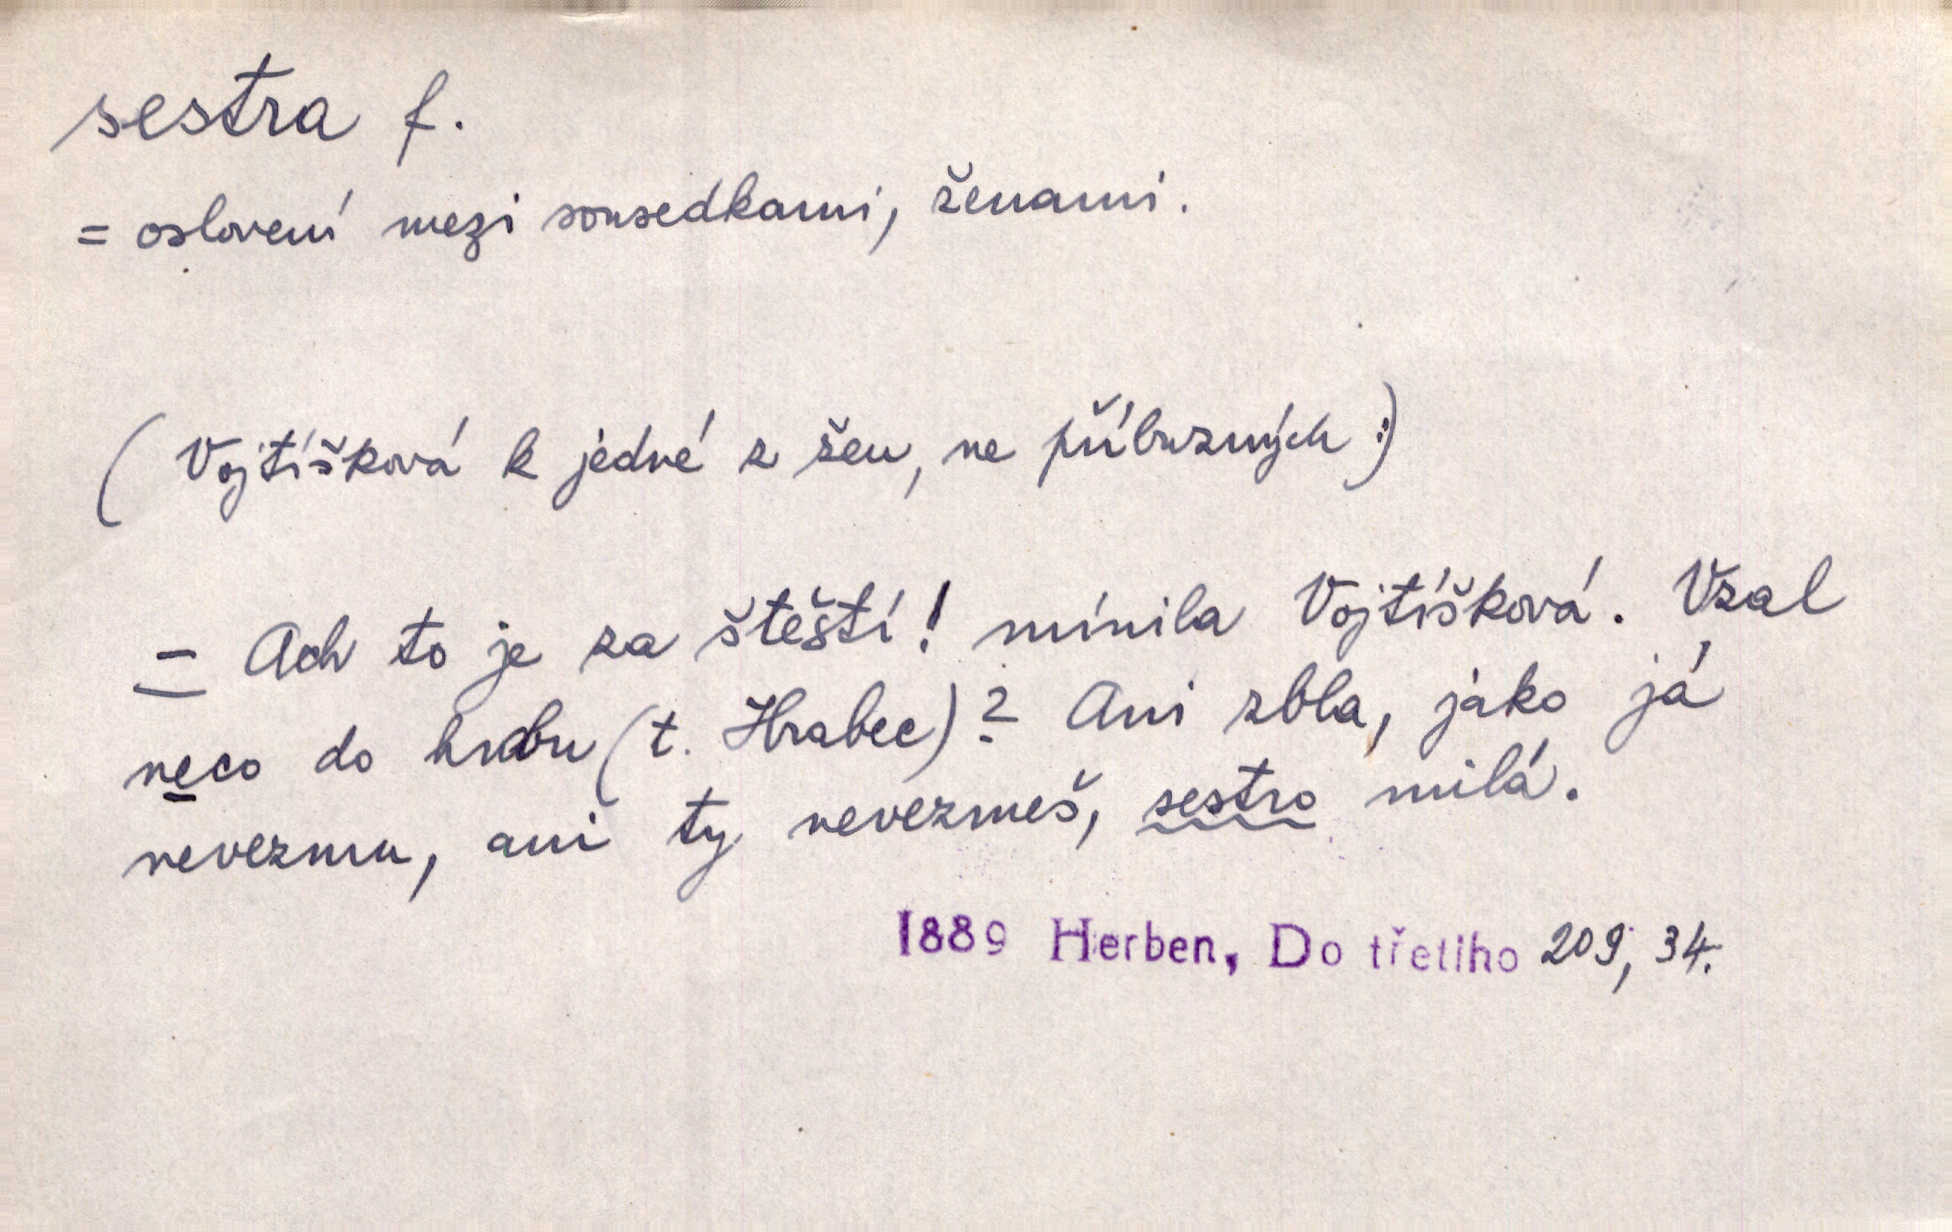 sestra f.
= oslovení mezi sousedkami, ženami.
( Vojtíšková k jedné z žen, ne příbuzných :)
= Ach to je za štěstí! mínila Vojtíšková. Vzal
neco do hrobu (t. Hrabec)? Ani zbla, jako já
nevezmu, ani ty nevezmeš, sestro milá.
1889 Herben, Do třetího 209, 34.